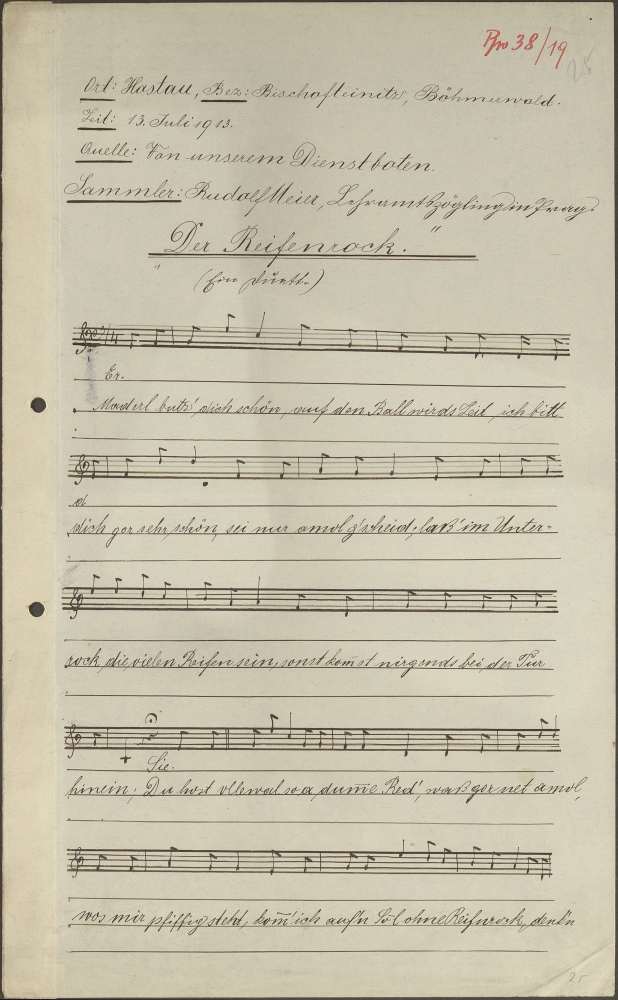 38/19
25
Ort: Hostau, Bez: Bischofteinitz, Böhmerwald.
Zeit: 13. Juli 1913.
Quelle: Von unserem Dienstboten.
Sammler: Rudolf Meier, Lehramtszögling in Prag.
„Der Reifenrock."
(Ein Duett.)
Er.
Maderl butz' dich schön, auf den Ball wirds Zeit, ich bitt
dich gor sehr schön, sei nur amol g'scheid; laß' im Unter-
rock die vielen Reifen sein, sonst kom̄st nirgends bei der Tür
Sie.
hinein; Du host ollewal so a dum̄e Red', waß gor net amol,
wos mir pfiffig steht, kom̄' ich auf'n Sol ohne Reifnrock, denk'n
25